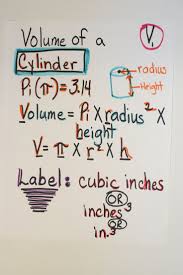 Volume of a
Cylinder
V,
Pi (π) = 3.14
radius
Height
Volume = Pi X radius² X
height
V = π X r² X h
Label: cubic inches
OR
inches³
OR
in.³